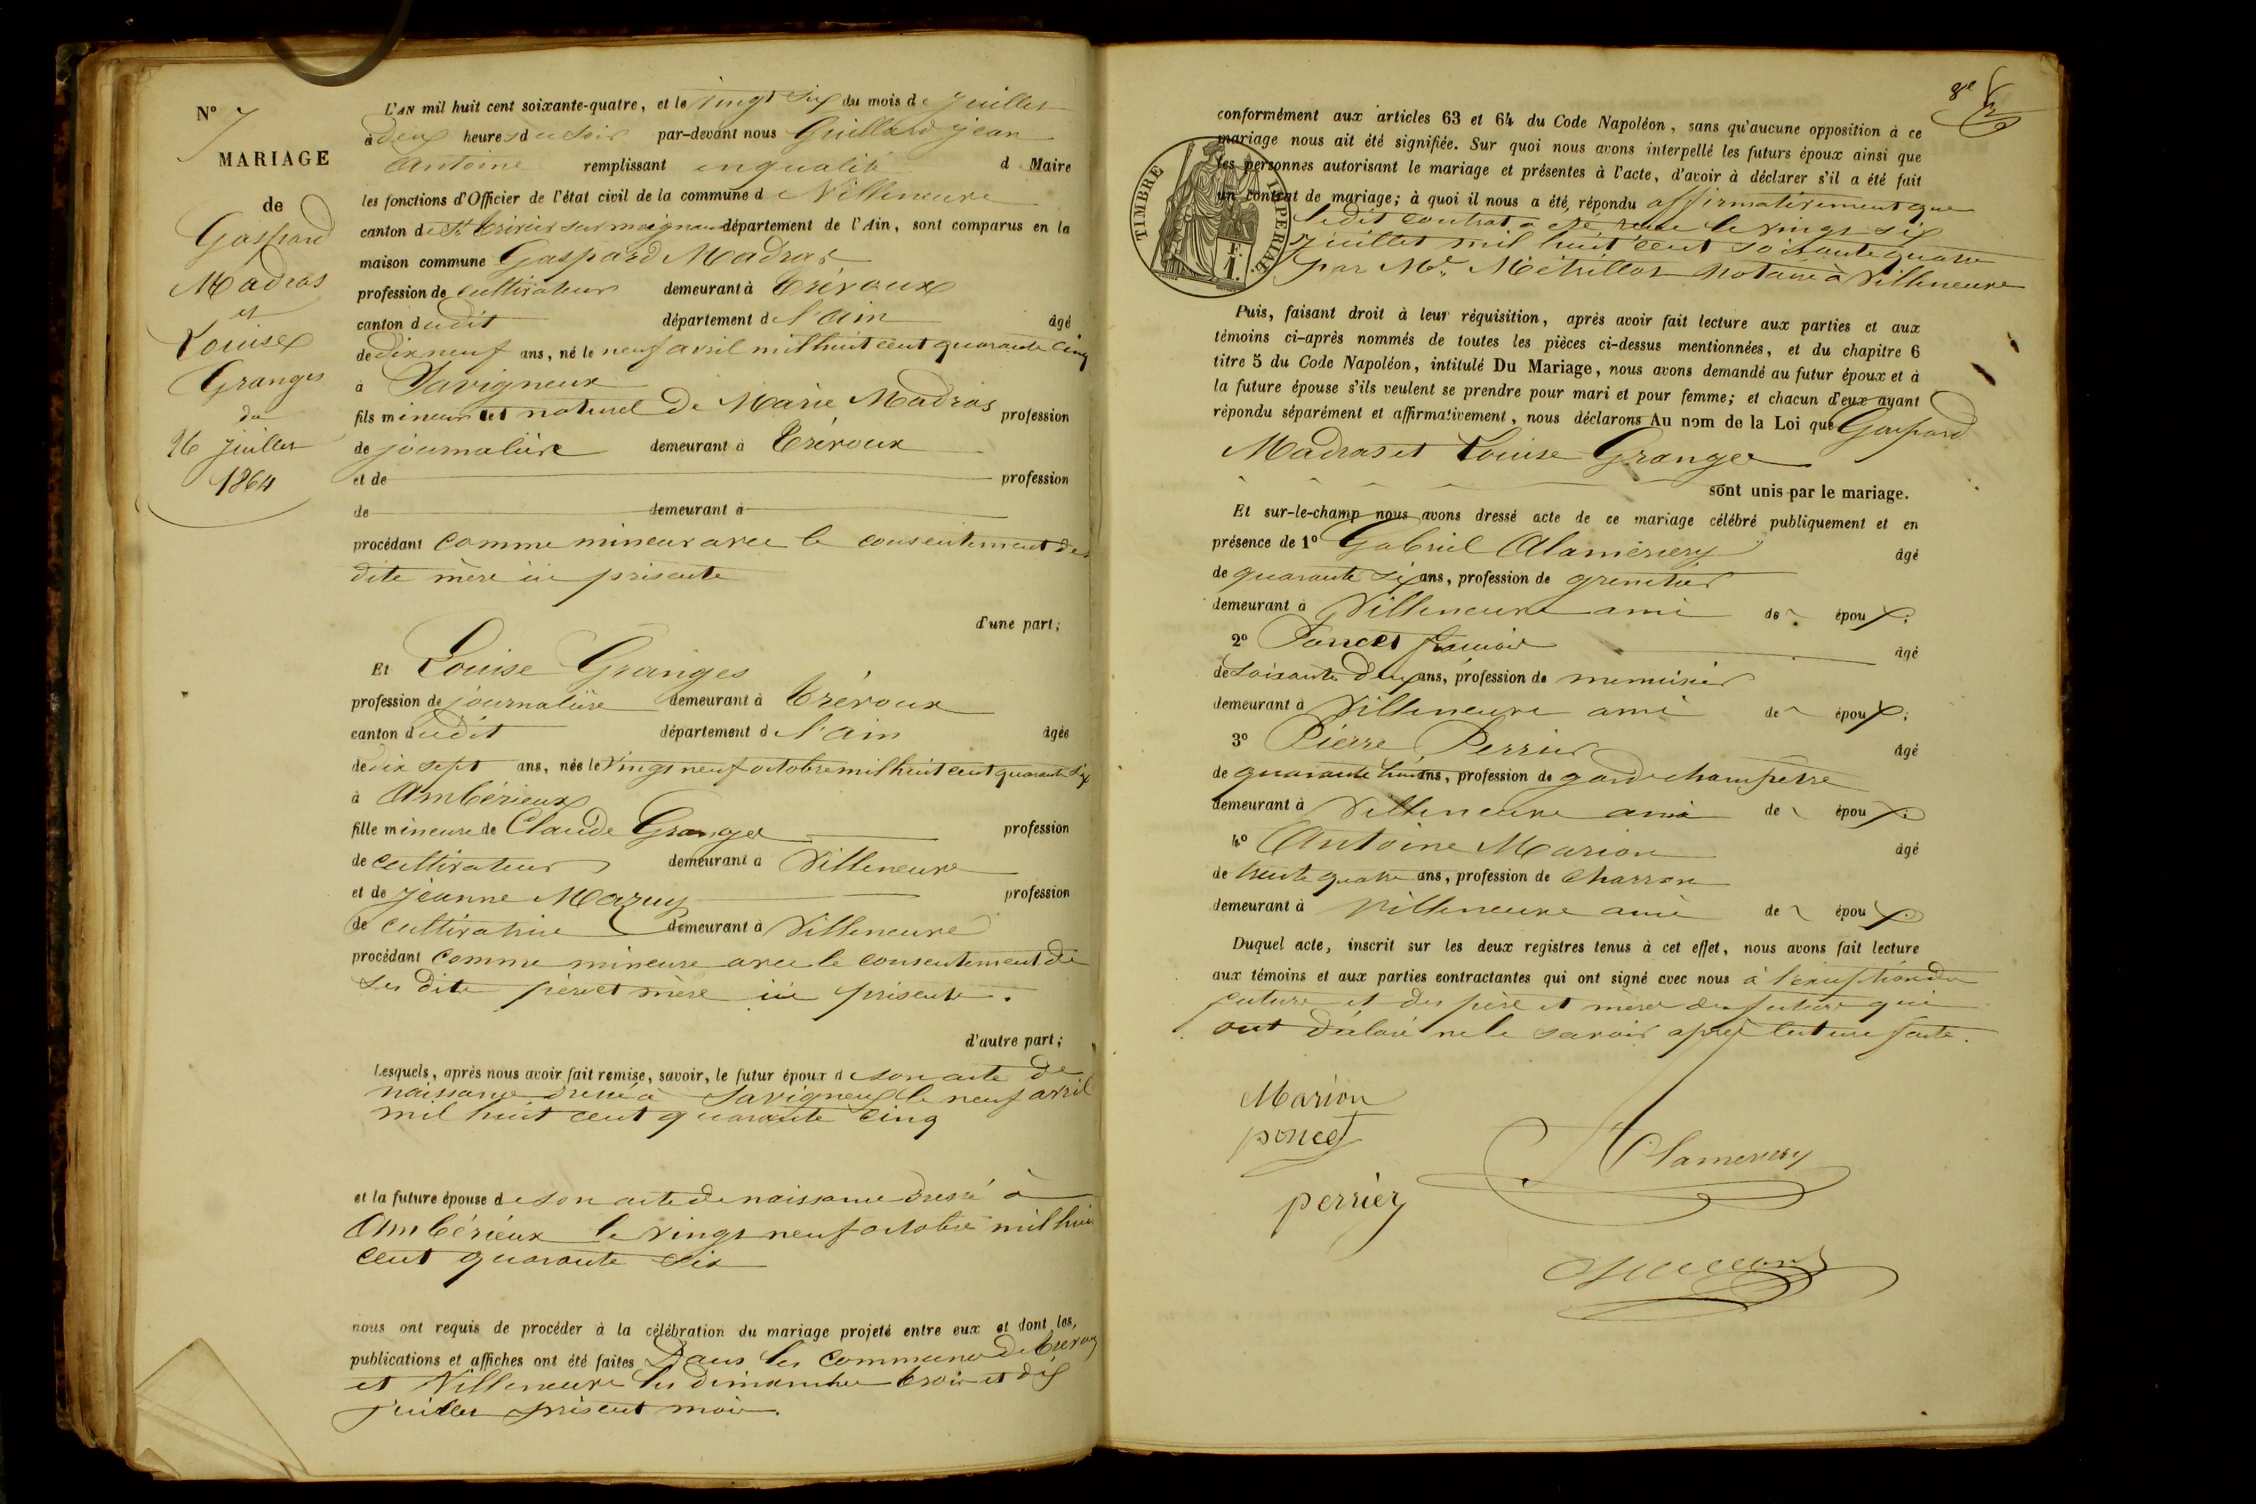 N° 7
MARIAGE
de
Gaspard
Madras
et
Louise
Granges
du
26 juillet
1864
L'AN mil huit cent soixante-quatre, et le vingt six du mois de juillet
à deux heures du soir par-devant nous Guillard jean
Antoine remplissant en qualité d Maire
les fonctions d'Officier de l'état civil de la commune de Villeneuve
canton de St Trivier sur moignans département de l'Ain, sont comparus en la
maison commune Gaspard Madras
profession de cultivateur demeurant à Trévoux
canton dudit département de l'ain âgé
de dix neuf ans, né le neuf avril mil huit cent quarante cinq
à Savigneux
fils mineur et naturel De Marie Madras profession
de journalière demeurant à Trévoux
et de profession
de demeurant à
procédant comme mineur avec le consentement de sa
dite mère ici présente
d'une part;
Et Louise Granges
profession de journalière demeurant à Trévoux
canton dudit département de l'ain âgée
de dix sept ans, née le vingt neuf octobre mil huit cent quarante six
à Ambérieux
fille mineure de Claude Granges profession
de cultivateur demeurant à Villeneuve
et de jeanne Mazuy profession
de cultivatrice demeurant à Villeneuve
procédant comme mineure avec le consentement de
ses dits père et mère ici présents.
d'autre part;
Lesquels, après nous avoir fait remise, savoir, le futur époux de son acte de
naissance dressé à Savigneux le neuf avril
mil huit cent quarante cinq
et la future épouse de son acte de naissance dressé à
Ambérieux le vingt neuf octobre mil huit
cent quarante six
nous ont requis de procéder à la célébration du mariage projeté entre eux et dont les
publications et affiches ont été faites Dans les communes de Trévoux
et Villeneuve les dimanches trois et dix
juillet présent mois.
conformément aux articles 63 et 64 du Code Napoléon, sans qu'aucune opposition à ce
mariage nous ait été signifiée. Sur quoi nous avons interpellé les futurs époux ainsi que
les personnes autorisant le mariage et présentes à l'acte, d'avoir à déclarer s'il a été fait
un contrat de mariage; à quoi il nous a été, répondu affirmativement que
ledit contrat a été reçu le vingt six
juillet mil huit cent soixante quatre
par Me Métrillot Notaire à Villeneuve
TIMBRE IMPERIAL
F. 1.
Puis, faisant droit à leur réquisition, après avoir fait lecture aux parties et aux
témoins ci-après nommés de toutes les pièces ci-dessus mentionnées, et du chapitre 6
titre 5 du Code Napoléon, intitulé Du Mariage, nous avons demandé au futur époux et à
la future épouse s'ils veulent se prendre pour mari et pour femme; et chacun d'eux ayant
répondu séparément et affirmativement, nous déclarons Au nom de la Loi que Gaspard
Madras et Louise Granges
sont unis par le mariage.
Et sur-le-champ nous avons dressé acte de ce mariage célébré publiquement et en
présence de 1° Gabriel Alamercery âgé
de quarante six ans, profession de grenetier
demeurant à Villeneuve ami des époux;
2° Poncet âgé
de soixante deux ans, profession de menuisier
demeurant à Villeneuve ami des époux;
3° Pierre Perrier âgé
de quarante huit ans, profession de garde champêtre
demeurant à Villeneuve ami des époux;
4° Antoine Marion âgé
de trente quatre ans, profession de charron
demeurant à Villeneuve ami des époux
Duquel acte, inscrit sur les deux registres tenus à cet effet, nous avons fait lecture
aux témoins et aux parties contractantes qui ont signé avec nous à l'exception de
future et des père et mère des futurs qui
ont déclaré ne le savoir après lecture faite.
Marion
poncet
Alamercery
perrier